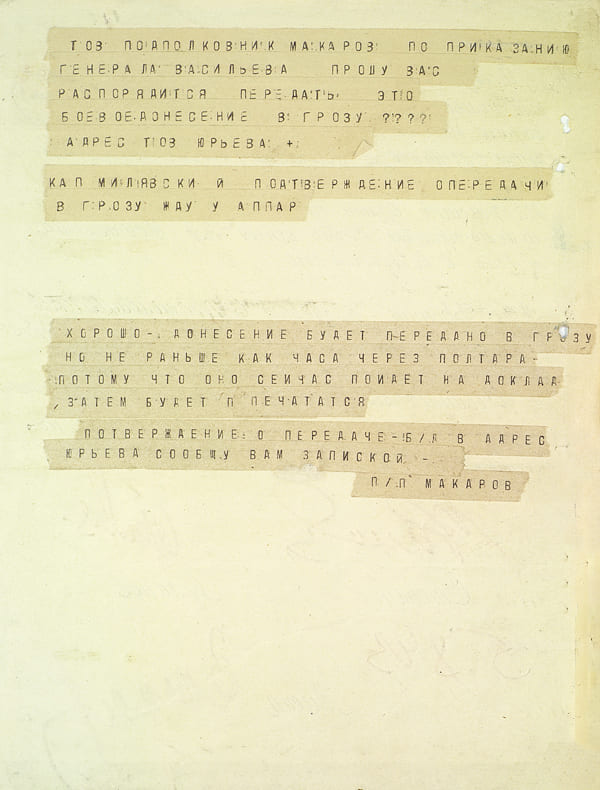 ТОВ ПОДПОЛКОВНИК МАКАРОВ ПО ПРИКАЗАНИЮ
ГЕНЕРАЛА ВАСИЛЬЕВА ПРОШУ ВАС
РАСПОРЯДИТСЯ ПЕРЕДАТЬ ЭТО
БОЕВОЕ ДОНЕСЕНИЕ В ГРОЗУ ????
АДРЕС ТОВ ЮРЬЕВА +
КАП МИЛЯВСКИ Й ПОДТВЕРЖДЕНИЕ ОПЕРЕДАЧИ
В ГРОЗУ ЖДУ У АППАР
ХОРОШО-. ДОНЕСЕНИЕ БУДЕТ ПЕРЕДАНО В ГРОЗУ
НО НЕ РАНЬШЕ КАК ЧАСА ЧЕРЕЗ ПОЛТАРА-
ПОТОМУ ЧТО ОНО СЕЙЧАС ПОЙДЕТ НА ДОКЛАД
,ЗАТЕМ БУДЕТ П ПЕЧАТАТСЯ
ПОТВЕРЖДЕНИЕ О ПЕРЕДАЧЕ-Б/Д В АДРЕС
ЮРЬЕВА СООБЩУ ВАМ ЗАПИСКОЙ -
П/П МАКАРОВ